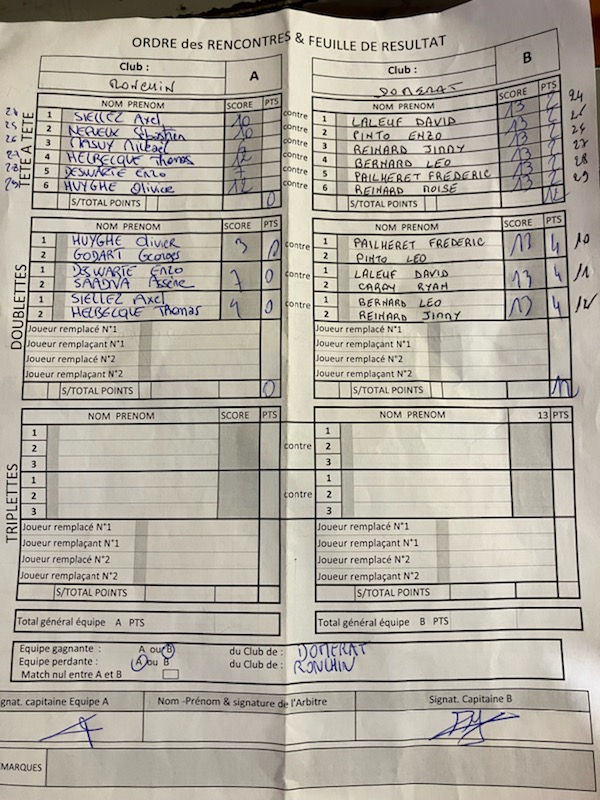 ORDRE des RENCONTRES & FEUILLE DE RESULTAT
Club : A Club : B
RONCHIN DOMERAT
NOM PRENOM SCORE PTS NOM PRENOM SCORE PTS
TETE A TETE
24 1 SIELLEZ Axel 10 contre 1 LALEUF DAVID 13 2 24
25 2 Sébastien 10 contre 2 PINTO ENZO 13 2 25
26 3 MASUY contre 3 REINARD JIMMY 13 2 26
27 4 HELBECQUE Thomas 12 contre 4 BERNARD LEO 13 2 27
28 5 DESWARTE Enzo 7 contre 5 PAILHERET FREDERIC 13 2 28
29 6 HUYGHE Olivier 12 contre 6 REINARD 13 2 29
S/TOTAL POINTS 0 S/TOTAL POINTS 12
DOUBLETTES
NOM PRENOM SCORE PTS NOM PRENOM SCORE PTS
1 HUYGHE Olivier 3 0 contre 1 PAILHERET FREDERIC 13 4 10
2 GODART Georges 2 PINTO LEO
1 DESWARTE Enzo 7 0 contre 1 LALEUF DAVID 13 4 11
2 SAADVA 2 CARRY RYAN
1 SIELLEZ Axel 0 contre 1 BERNARD LEO 13 4 12
2 HELBECQUE Thomas 2 REINARD JIMMY
Joueur remplacé N°1 Joueur remplacé N°1
Joueur remplaçant N°1 Joueur remplaçant N°1
Joueur remplacé N°2 Joueur remplacé N°2
Joueur remplaçant N°2 Joueur remplaçant N°2
S/TOTAL POINTS 0 S/TOTAL POINTS 12
TRIPLETTES
NOM PRENOM SCORE PTS NOM PRENOM 13 PTS
1 1
2 contre 2
3 3
1 1
2 contre 2
3 3
Joueur remplacé N°1 Joueur remplacé N°1
Joueur remplaçant N°1 Joueur remplaçant N°1
Joueur remplacé N°2 Joueur remplacé N°2
Joueur remplaçant N°2 Joueur remplaçant N°2
S/TOTAL POINTS S/TOTAL POINTS
Total général équipe A PTS Total général équipe B PTS
Equipe gagnante : A ou B du Club de : DOMERAT
Equipe perdante : A ou B du Club de : RONCHIN
Match nul entre A et B
gnat. capitaine Equipe A Nom -Prénom & signature de l'Arbitre Signat. Capitaine B
MARQUES